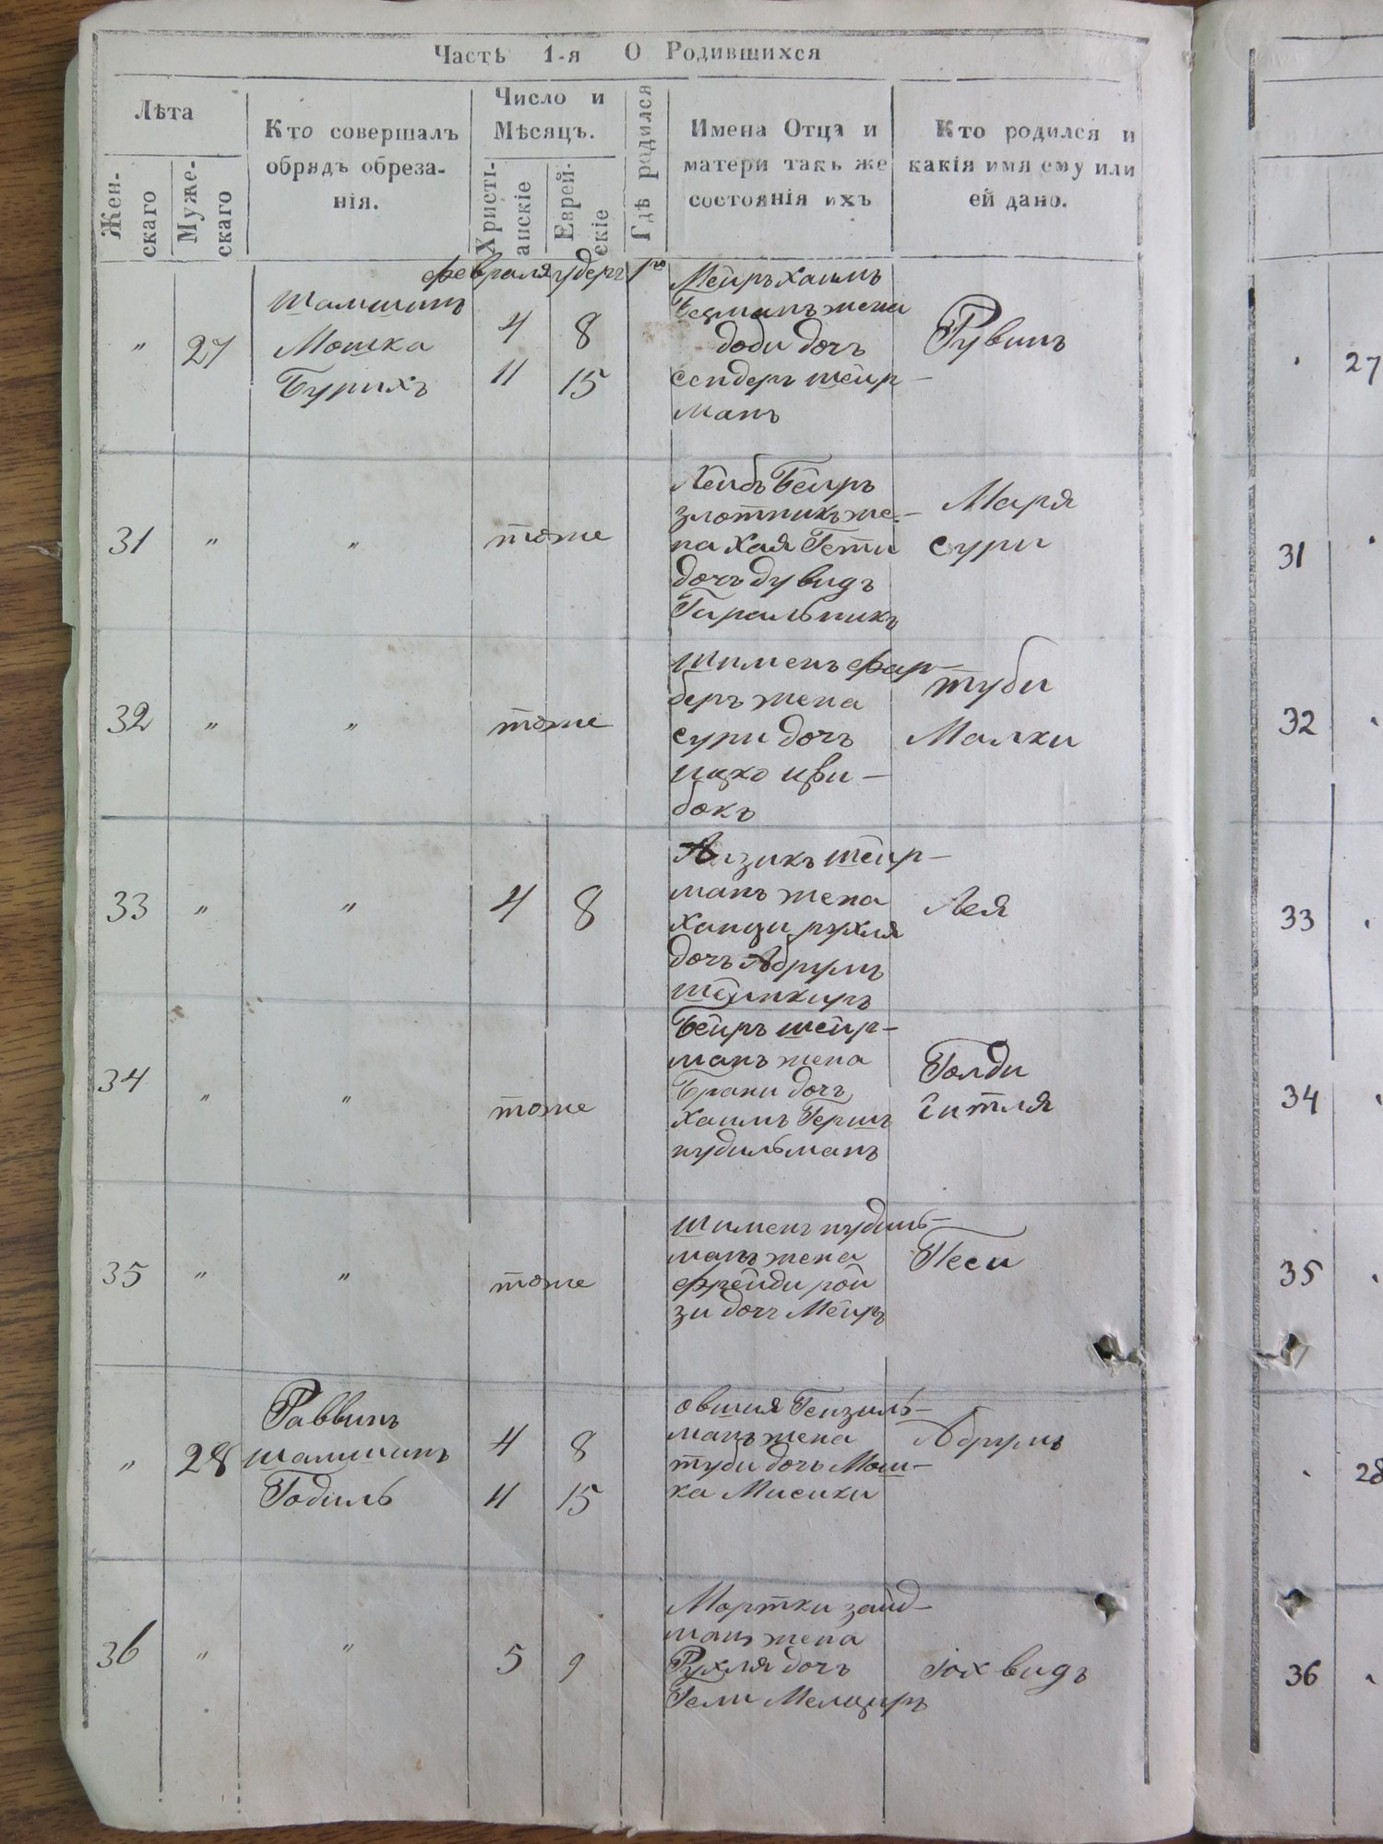 Часть 1-я О Родившихся
Лѣта
Жен-
скаго
Муже-
скаго
Кто совершалъ
обрядъ обреза-
нія.
Число и
Мѣсяцъ.
Христі-
анскіе
Еврей-
скіе
Гдѣ родился
Имена Отца и
матери такъ же
состоянія ихъ
Кто родился и
какія имя ему или
ей дано.
февраля удеръ 1го
" 27
шамшинъ
Мошка
Бурихъ
4 8
11 15
Мейръ хаимъ
жена
доди дочъ
сендеръ шейр-
манъ
Рувинъ
31 " "
тоже
Лейбъ Бейръ
злотникъ же-
на хая Гети
дочъ дувидъ
Гаральникъ
Маря
сури
32 " "
тоже
шименъ фар-
беръ жена
сури дочъ
ицко цви-
бокъ
туби
Малки
33 " "
4 8
Айзикъ шейр-
манъ жена
ханци рухля
дочъ Абрумъ
Лея
34 " "
тоже
Бейръ шейр-
манъ жена
Брани дочъ
хаимъ Гершъ
нудильманъ
Голди
гитля
35 " "
тоже
шименъ нудиль-
манъ жена
фрейди рой
зи дочъ Мейръ
Песи
" 28
Раввинъ
шамшинъ
Годиль
4 8
11 15
овшия Гензиль-
манъ жена
туби дочъ Мош-
ка Мисихи
Абрумъ
36 " "
5 9
Мортки зайд-
манъ жена
Рухля дочъ
Гели Мелциръ
Іохвидъ
27
31
32
33
34
35
28
36